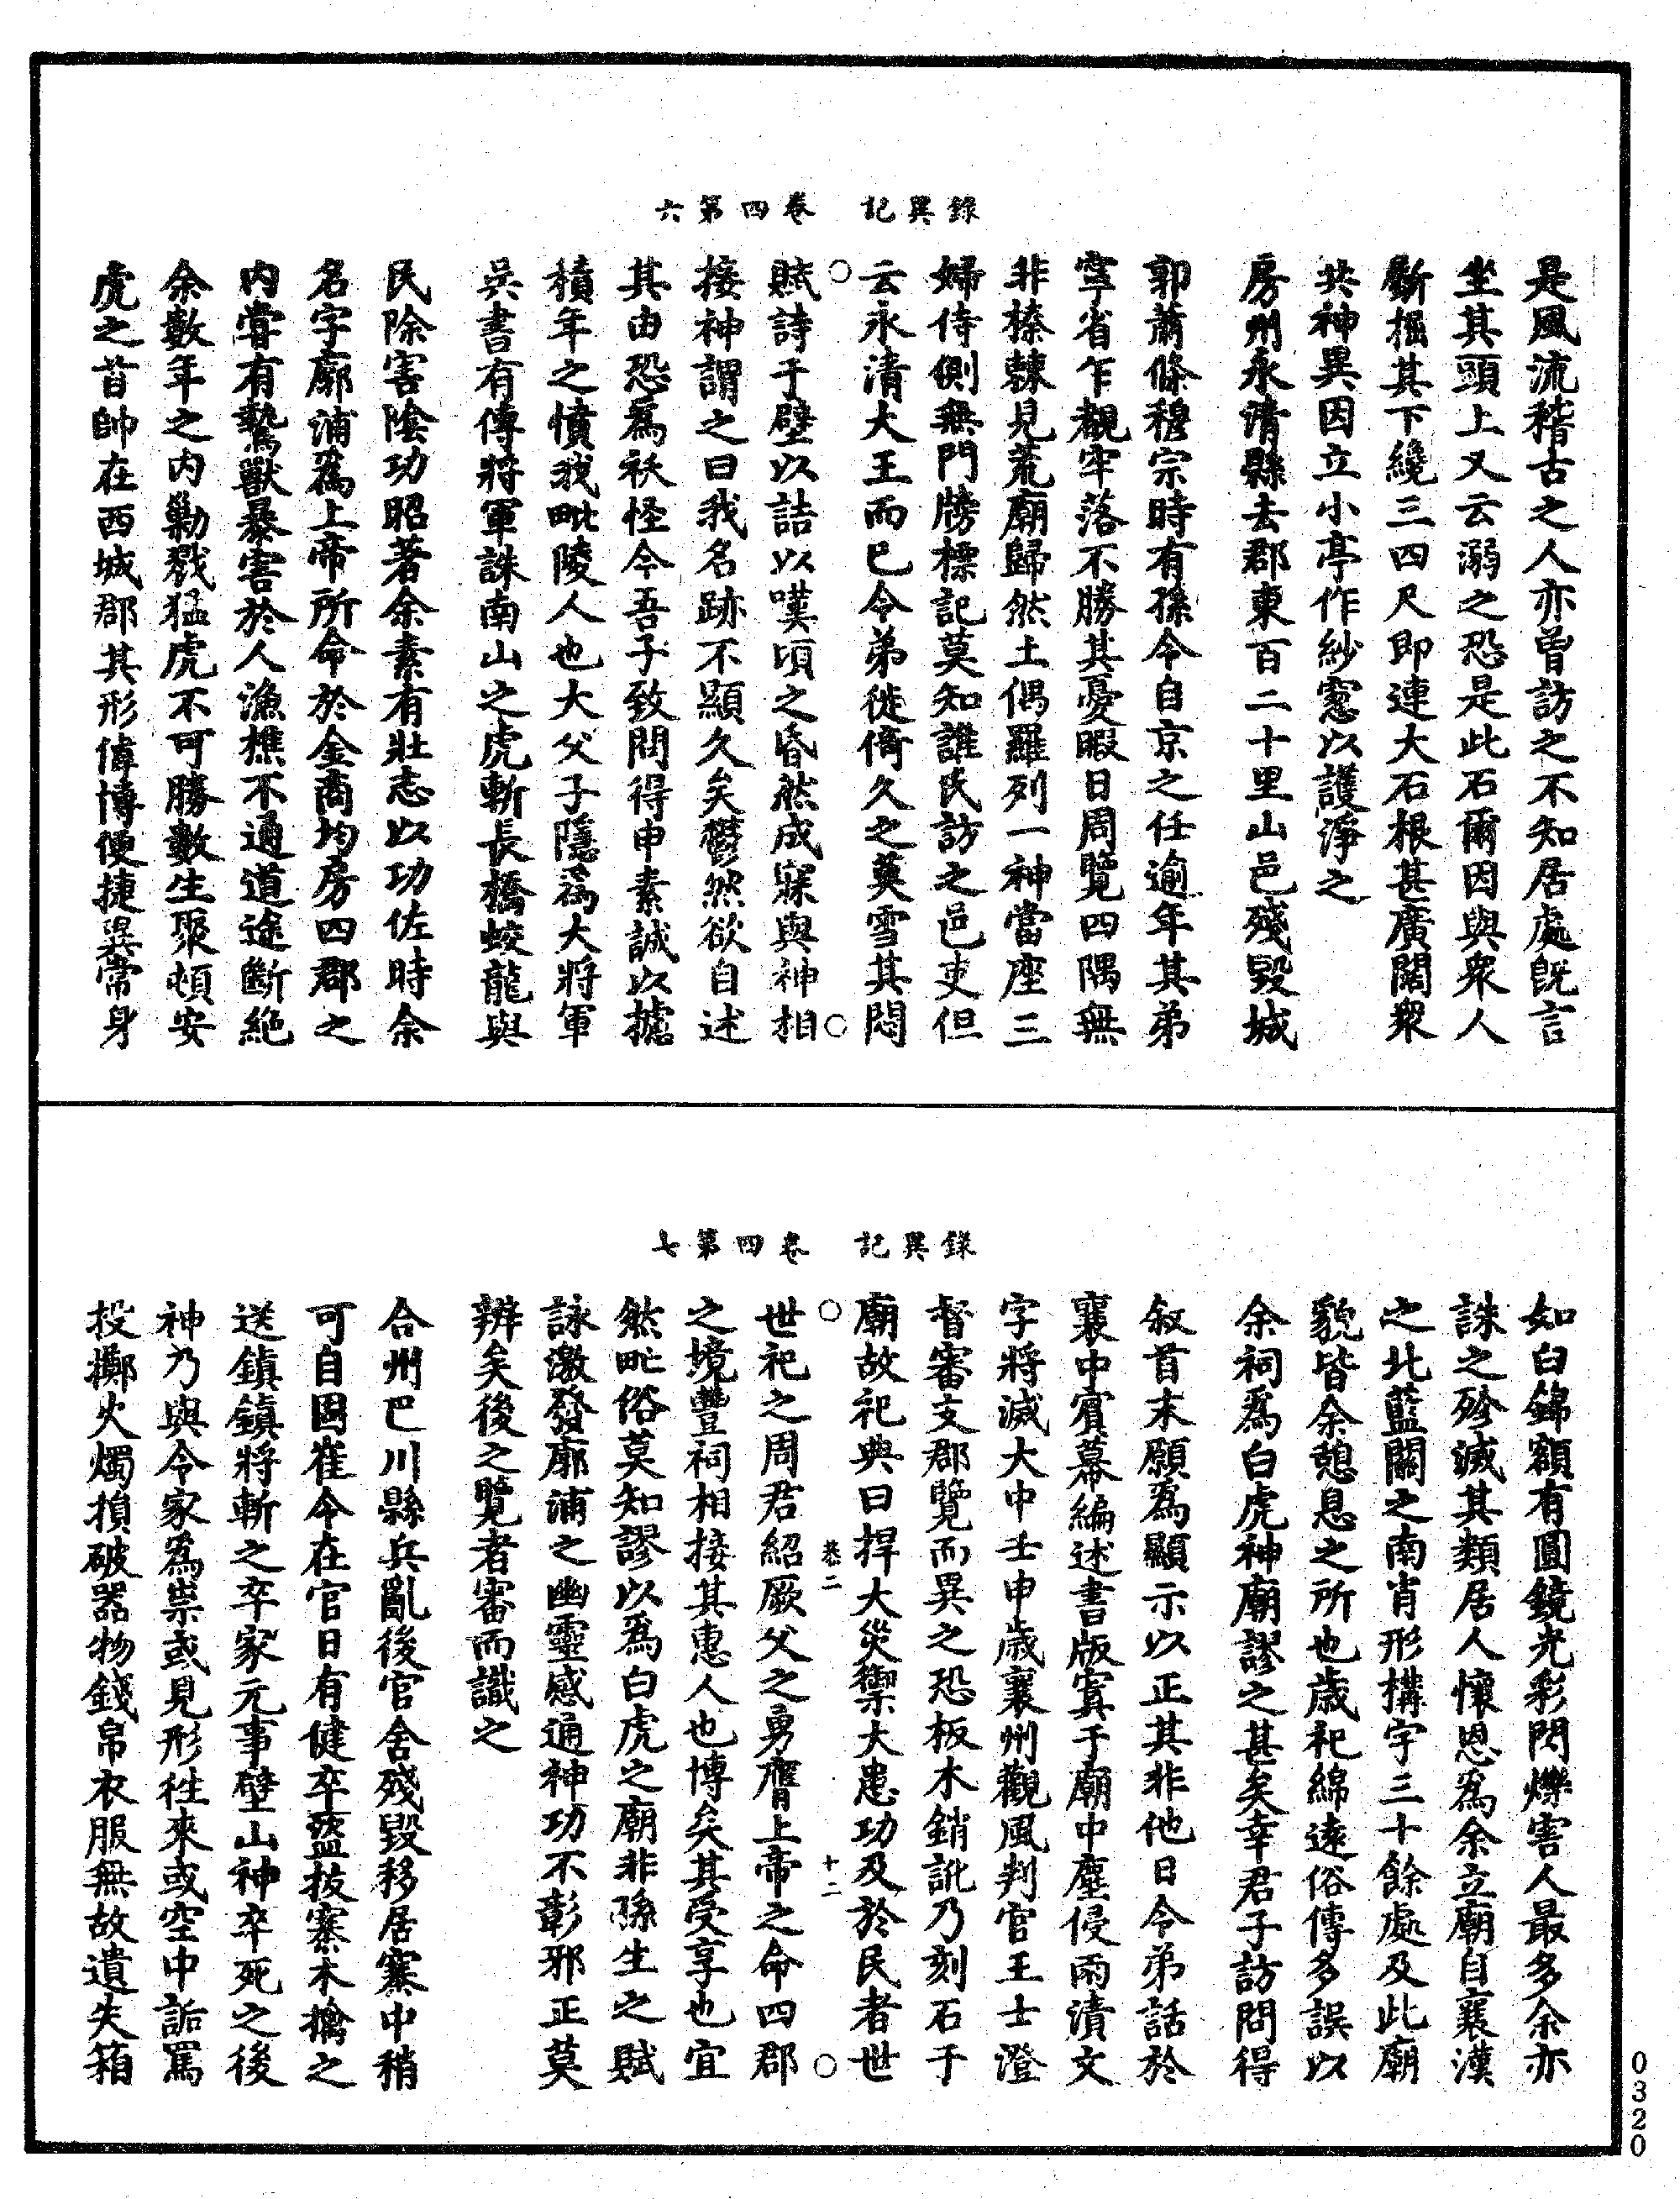 錄異記　卷四第六
是風流稽古之人亦曾訪之不知居處旣言
坐其頭上又云溺之恐是此石爾因與衆人
斸掘其下纔三四尺即連大石根甚廣闊衆
共神異因立小亭作紗窓以護淨之
房州永清縣去郡東百二十里山邑殘毀城
郭蕭條穆宗時有孫令自京之任逾年其弟
寧省乍觀牢落不勝其憂暇日周覽四隅無
非榛棘見荒廟巋然土偶羅列一神當座三
婦侍側無門牓標記莫知誰氏訪之邑吏但
云永清大王而已令弟徙倚久之莫雪其悶
賦詩于壁以詰以嘆頃之昏然成寐與神相
接神謂之曰我名跡不顯久矣鬱然欲自述
其由恐爲袄怪今吾子致問得申素誠以攄
積年之憤我毗陵人也大父子隱爲大將軍
吳書有傳將軍誅南山之虎斬長橋蛟龍與
民除害陰功昭著余素有壯志以功佐時余
名字廓浦爲上帝所命於金商均房四郡之
内嘗有鷙獸暴害於人漁樵不通道途斷絶
余數年之内勦戮猛虎不可勝數生聚頓安
虎之首帥在西城郡其形偉博便捷異常身
錄異記　卷四第七
如白錦額有圓鏡光彩閃爍害人最多余亦
誅之殄滅其類居人懷恩爲余立廟自襄漢
之北藍關之南肖形構宇三十餘處及此廟
貌皆余憩息之所也歲祀綿遠俗傳多誤以
余祠爲白虎神廟謬之甚矣幸君子訪問得
叙首末願爲顯示以正其非他日令弟話於
襄中賓幕編述書版寘于廟中塵侵雨漬文
字將滅大中壬申歲襄州觀風判官王士澄
督審支郡覽而異之恐板木銷訛乃刻石于
廟故祀典曰捍大災禦大患功及於民者世
恭二　十二
世祀之周君紹厥父之勇膺上帝之命四郡
之境豐祠相接其惠人也博矣其受享也宜
然甿俗莫知謬以爲白虎之廟非孫生之賦
詠激發廓浦之幽靈感通神功不彰邪正莫
辨矣後之覽者審而識之
合州巴川縣兵亂後官舍殘毀移居寨中稍
可自固崔令在官日有健卒盜拔寨木擒之
送鎮鎮將斬之卒家元事壁山神卒死之後
神乃與令家爲祟或見形徃來或空中詬罵
投擲火燭損破器物錢帛衣服無故遺失箱
0320